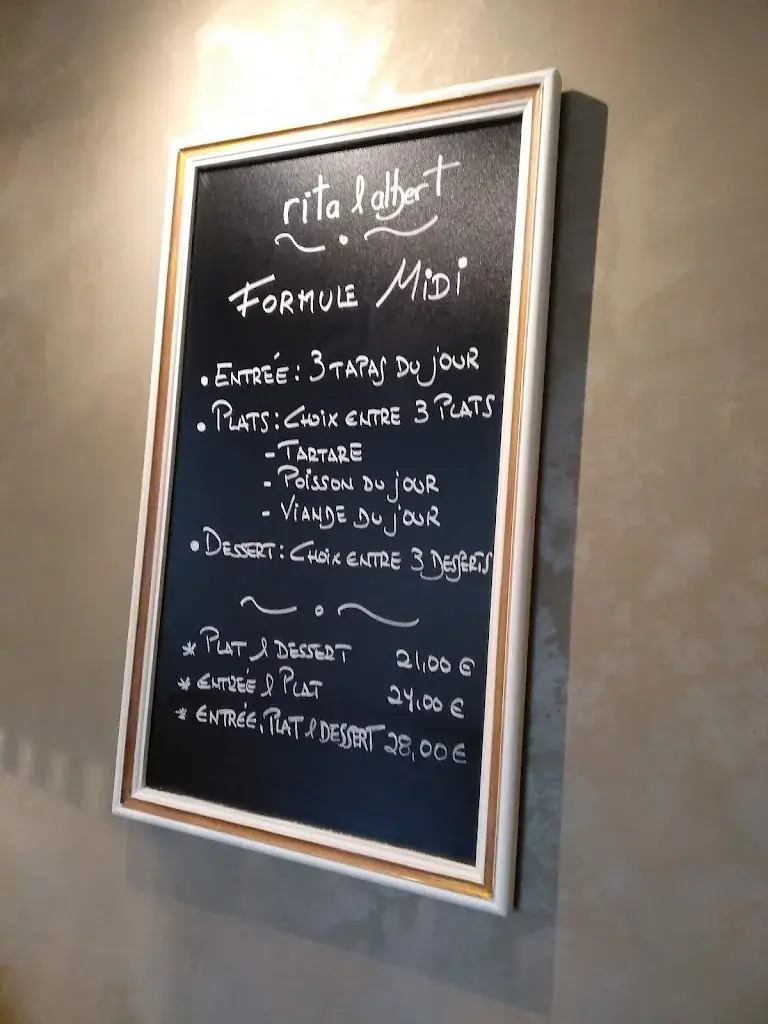 rita & albert
FORMULE MIDI
• ENTRÉE : 3 TAPAS DU JOUR
• PLATS : CHOIX ENTRE 3 PLATS
- TARTARE
- POISSON DU JOUR
- VIANDE DU JOUR
• DESSERT : CHOIX ENTRE 3 DESSERTS
* PLAT & DESSERT 21,00 €
* ENTRÉE & PLAT 24,00 €
* ENTRÉE, PLAT & DESSERT 28,00 €